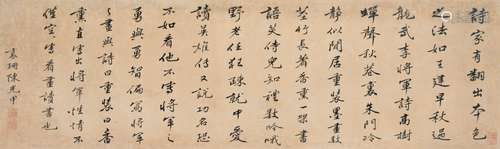 詩家有翻出本色
之法如王建早秋過
龍武李將軍詩高樹
蟬聲秋巷裏朱門冷
靜似閒居重裝墨畫數
莖竹長著香薰一架書
語笑侍兒知禮數吟哦
野老任狂疎就中愛
讀英雄傳又說功名恐
不如看他不寫將軍之
勇與智偏寫將軍
之畫與詩曰重裝曰香
薰直寫出將軍性情不
僅寫看畫讀書也
珊陳